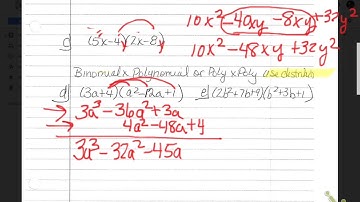 10x² -40xy -8xy +32y²
c) (5x-4)(2x-8)
10x² -48xy +32y²
Binomial x Polynomial or Poly x Poly use distributive
d) (3a+4)(a²-12a+1) e) (2b²+7b+9)(b²+3b+1)
3a³ -36a² +3a
4a² -48a +4
3a³ -32a² -45a